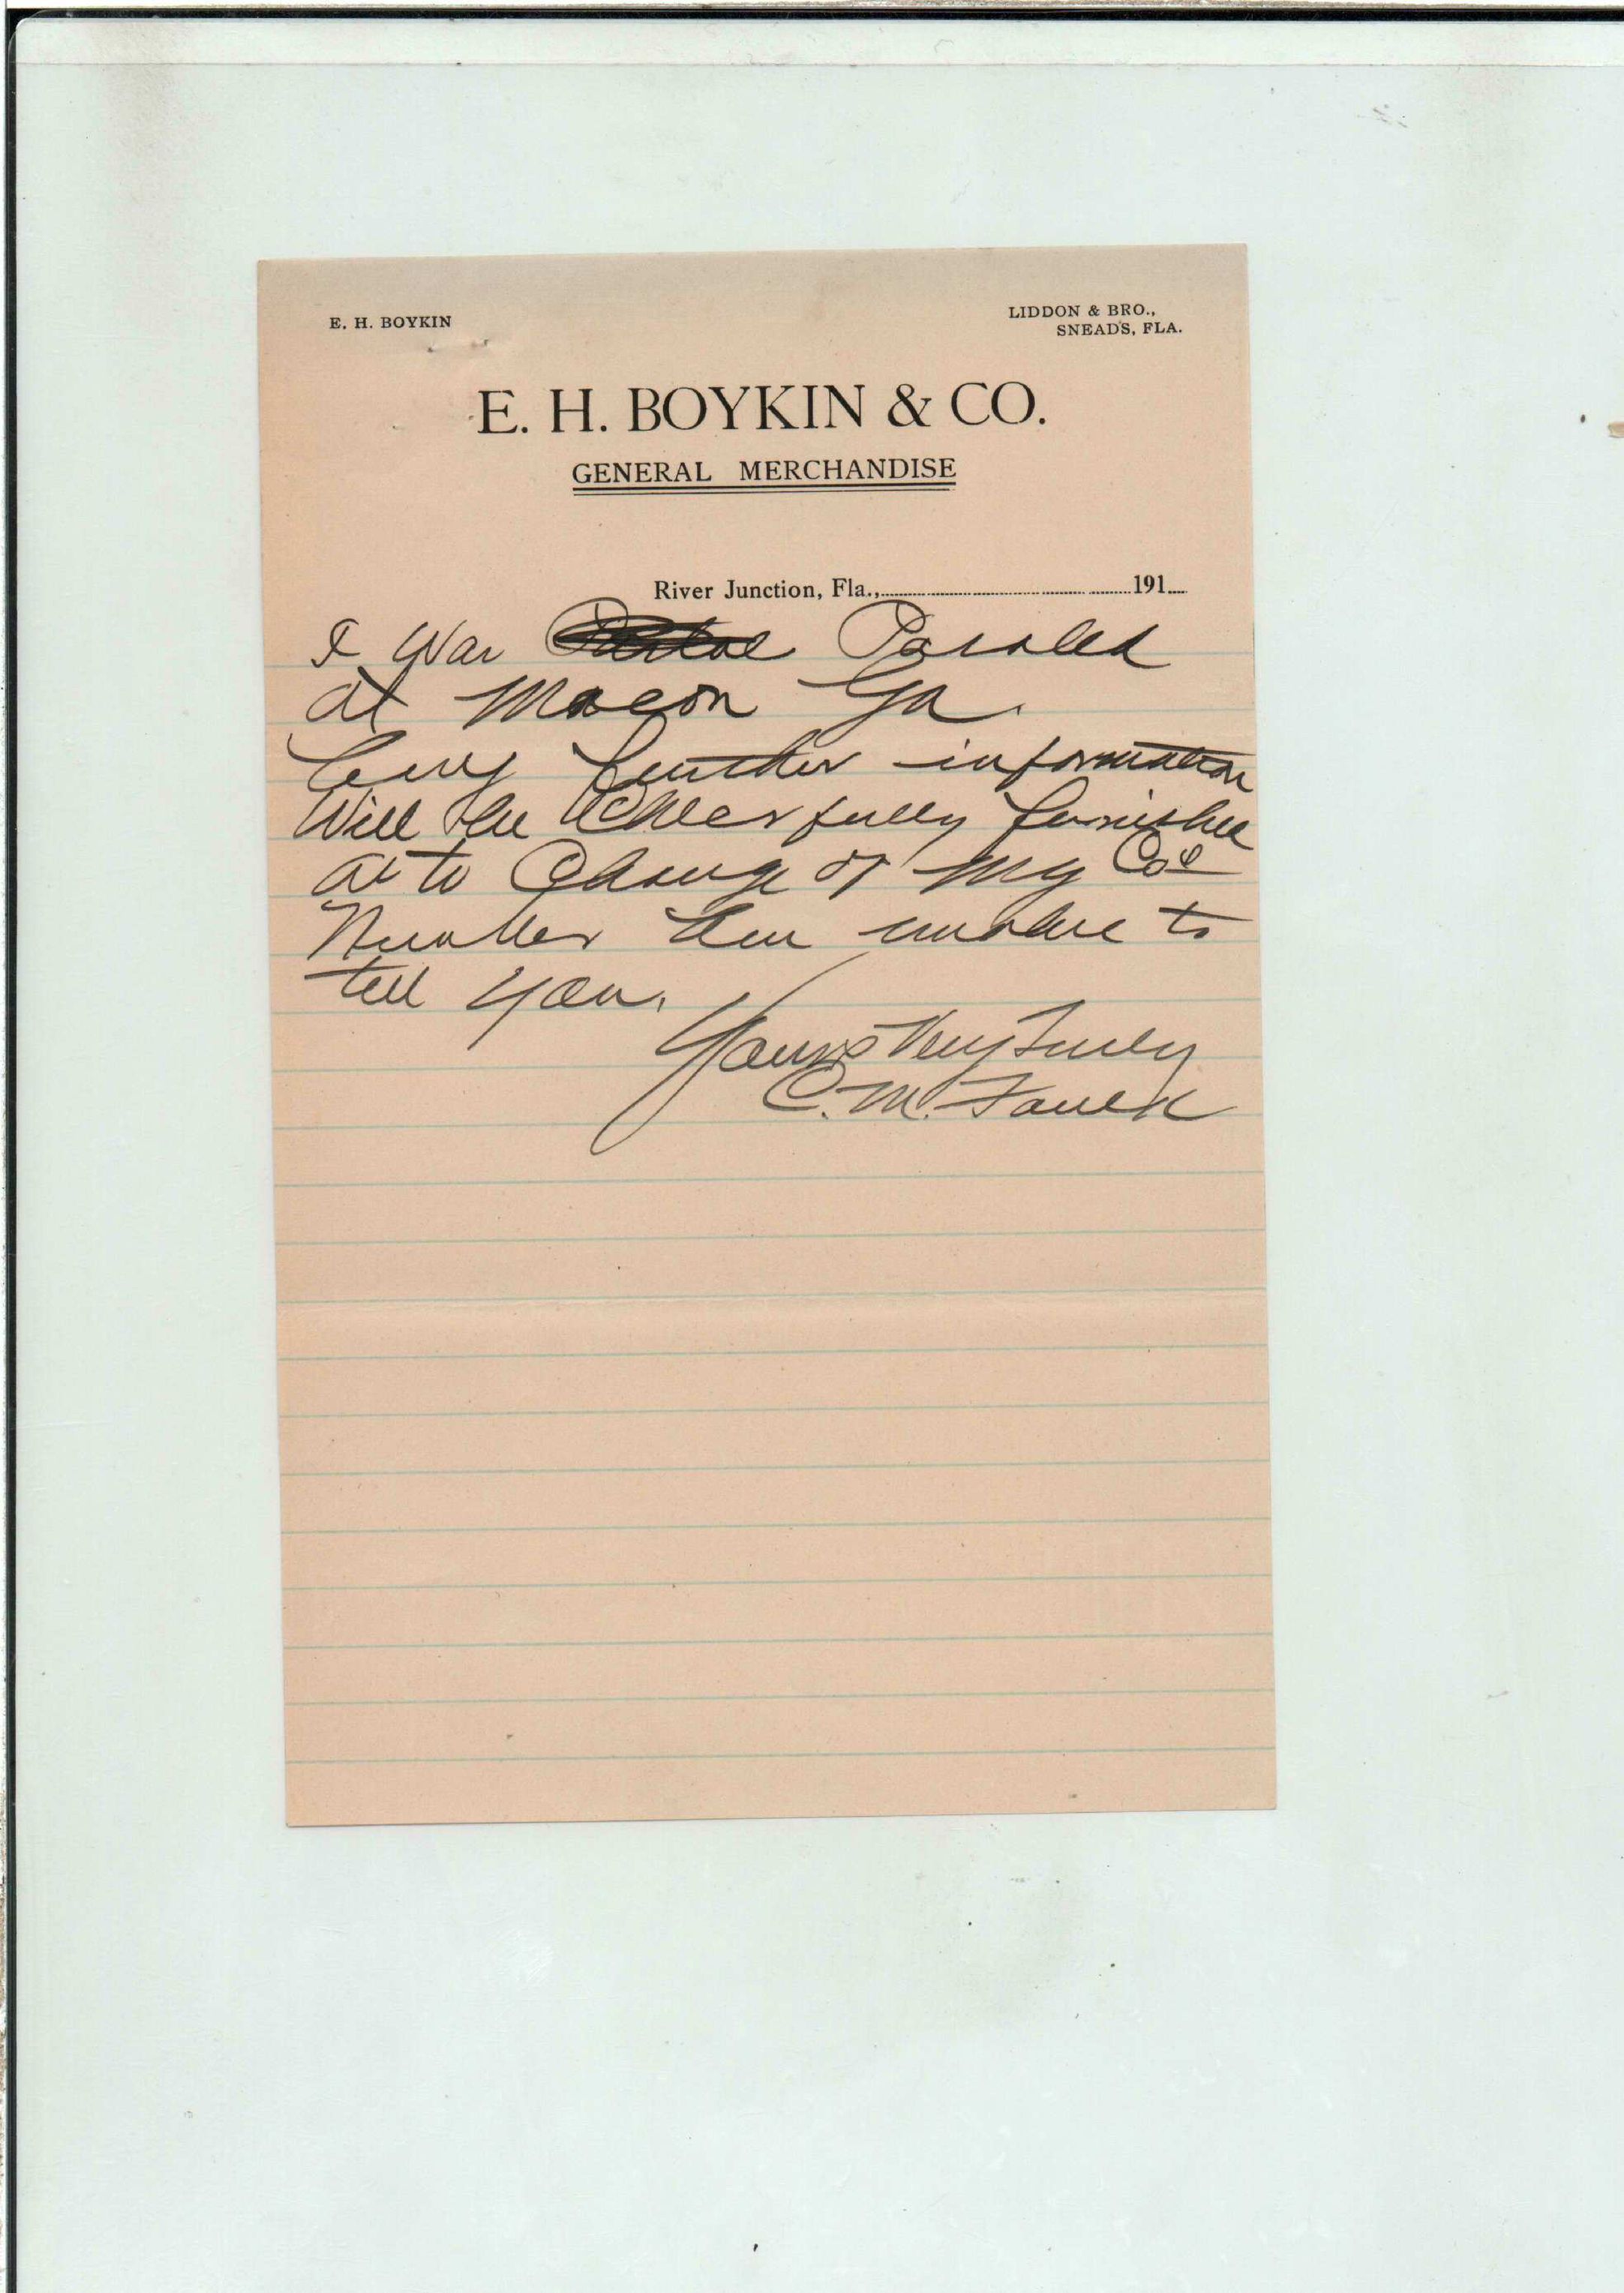 E. H. BOYKIN
LIDDON & BRO.,
SNEADS, FLA.
E. H. BOYKIN & CO.
GENERAL MERCHANDISE
River Junction, Fla., 191
I was Paroled
at Macon Ga.
Any further information
Will be Cheerfully furnished
as to Change of my Co's
Number am unable to
tell you.
Yours Very Truly
C. M. Faulk